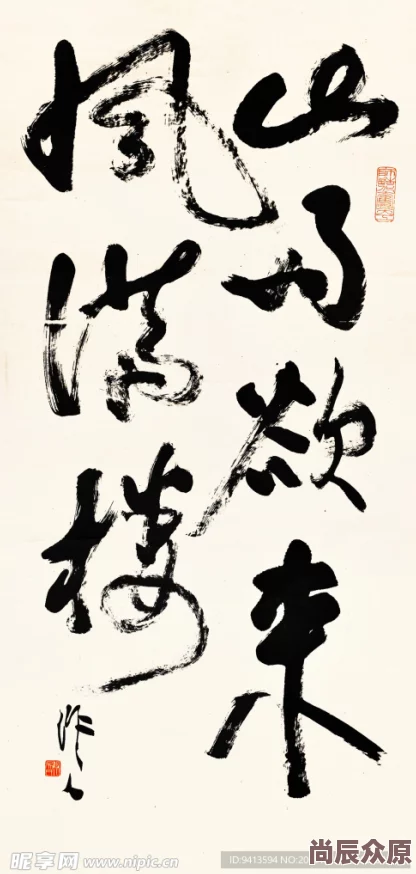 山雨欲来
风满楼
昵享网 www.nipic.cn
ID:9413594 NO:20
尚辰众原